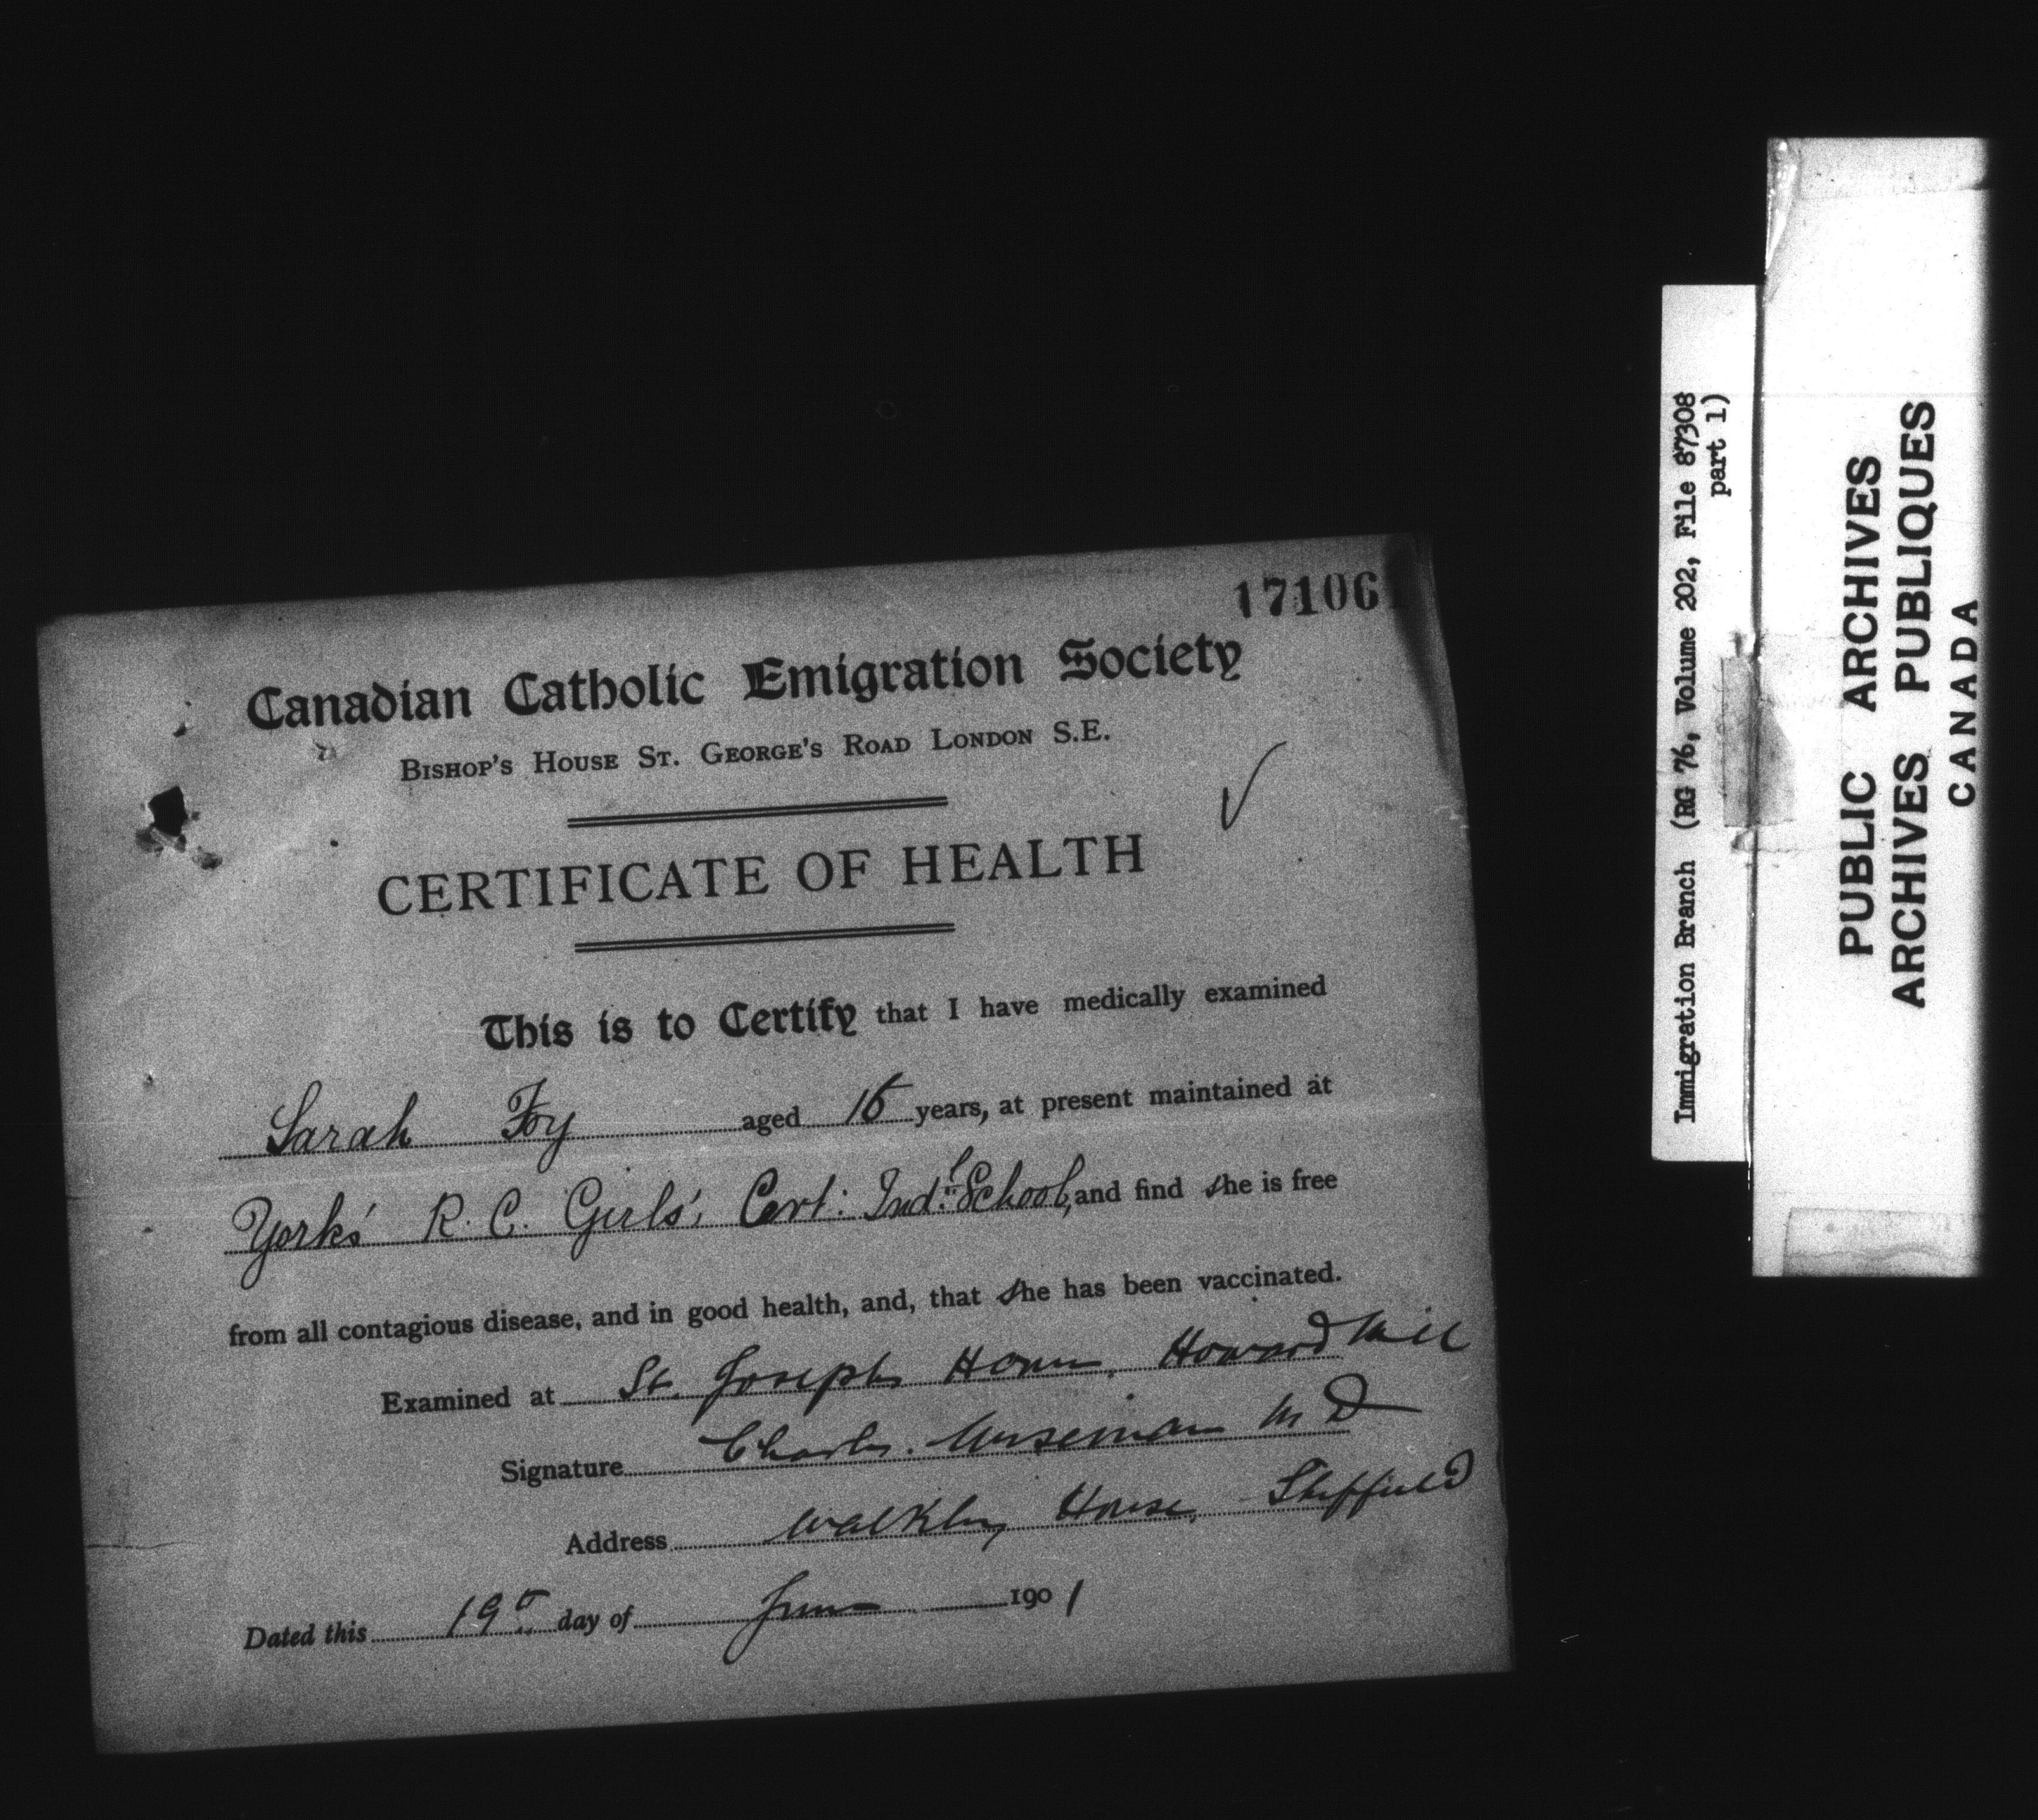 171061
Canadian Catholic Emigration Society
BISHOP'S HOUSE ST. GEORGE'S ROAD LONDON S.E.
CERTIFICATE OF HEALTH
This is to Certify that I have medically examined
Sarah Foy aged 15 years, at present maintained at
Yorks' R. C. Girls', Cert: Indl. School, and find she is free
from all contagious disease, and in good health, and, that she has been vaccinated.
Examined at St. Josephs Home, Howard Hill
Signature Charles M D
Address Walkley House, Sheffield
Dated this 19th day of June 1901
Immigration Branch (RG 76, Volume 202, File 87308
part 1)
PUBLIC ARCHIVES
ARCHIVES PUBLIQUES
CANADA